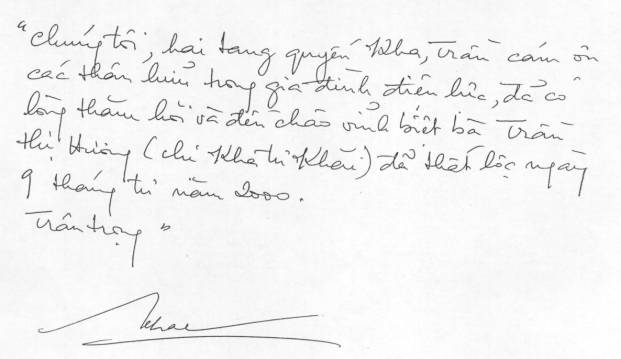 "Chúng tôi, hai tang quyến Kha, Trần cám ơn
các thân hữu trong gia đình điện lực, đã có
lòng thăm hỏi và đến chào vĩnh biệt bà Trần
thị Hương (chị Kha tư Khải) đã thất lộc ngày
9 tháng tư năm 2000.
Trân trọng"